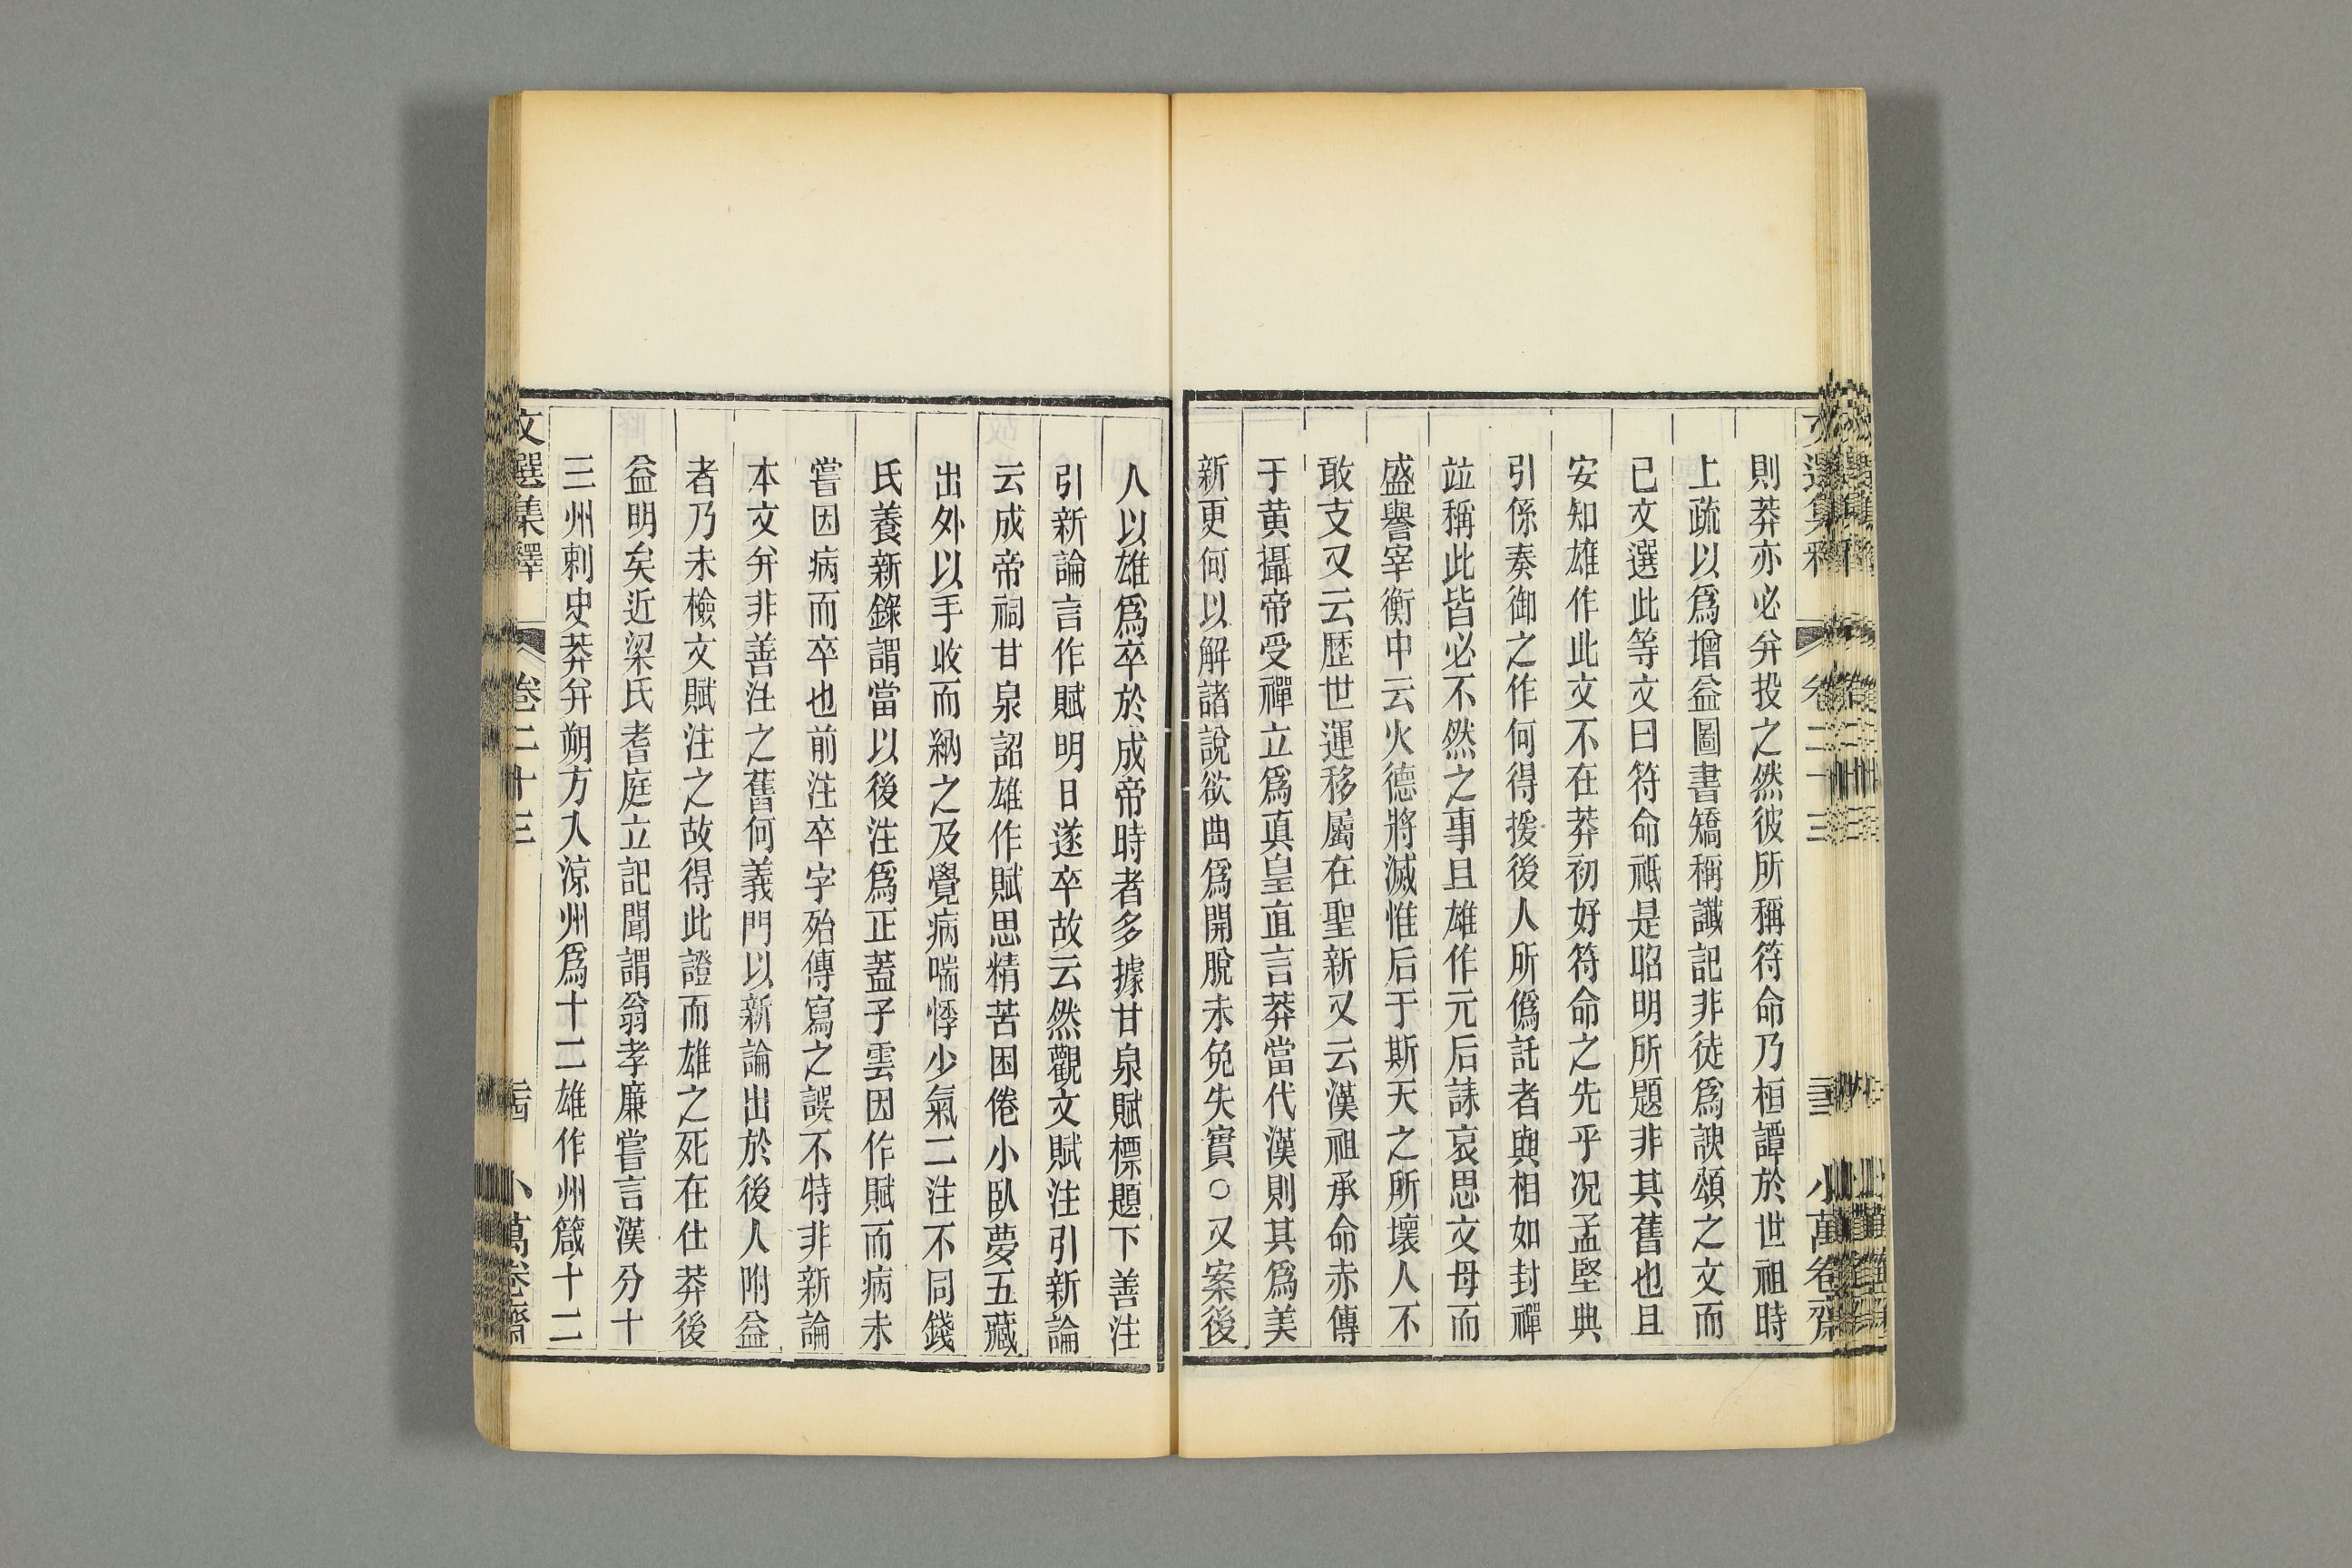 則莽亦必弁投之然彼所稱符命乃桓譚於世祖時
上疏以爲增益圖書矯稱讖記非徒爲諛頌之文而
已文選此等文曰符命祗是昭明所題非其舊也且
安知雄作此文不在莽初好符命之先乎况孟堅典
引係奏御之作何得援後人所僞託者與相如封禪
竝稱此皆必不然之事且雄作元后誄哀思文母而
盛譽宰衡中云火德將滅惟后于斯天之所壞人不
敢支又云歴世運移屬在聖新又云漢祖承命赤傳
于黄攝帝受禪立爲真皇直言莽當代漢則其爲美
新更何以解諸說欲曲爲開脫未免失實○又案後
人以雄爲卒於成帝時者多據甘泉賦標題下善注
引新論言作賦明日遂卒故云然觀文賦注引新論
云成帝祠甘泉詔雄作賦思精苦困倦小臥夢五藏
出外以手收而納之及覺病喘悸少氣二注不同錢
氏養新錄謂當以後注爲正蓋子雲因作賦而病未
嘗因病而卒也前注卒字殆傳寫之誤不特非新論
本文弁非善注之舊何義門以新論出於後人附益
者乃未檢文賦注之故得此證而雄之死在仕莽後
益明矣近梁氏耆庭立記聞謂翁孝廉嘗言漢分十
三州刺史莽弁朔方入涼州爲十二雄作州箴十二
文選集釋
卷二十三
小萬卷齋